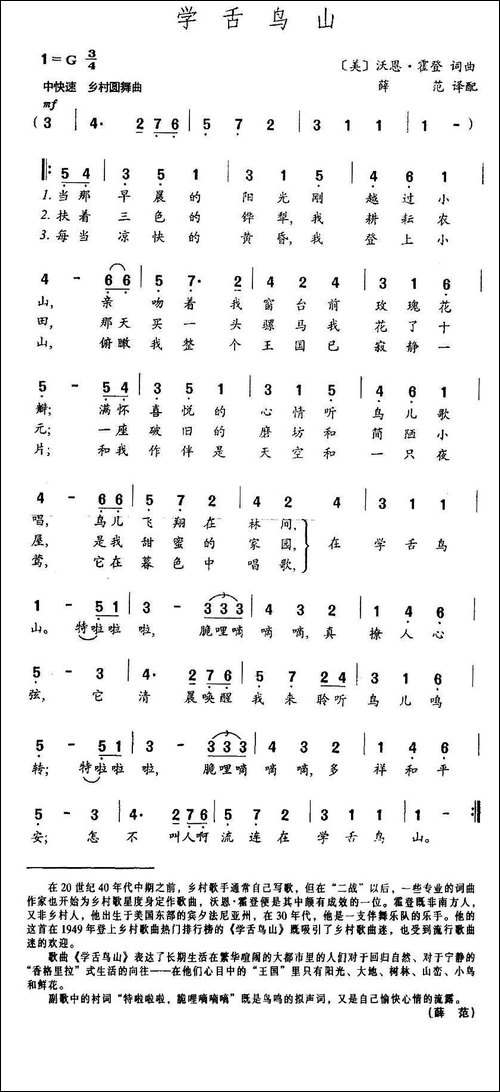 学舌鸟山
1=G 3/4
〔美〕沃恩·霍登 词曲
中快速 乡村圆舞曲
薛 范 译配
mf
(3 | 4· 2 7 6 | 5 7 2 | 3 1 1 | 1 - )
5 4 | 3 5 1 | 3 1 5 | 4 6 1
1. 当那 早晨的 阳光刚 越过小
2. 扶着 三色的 铧犁,我 耕耘农
3. 每当 凉快的 黄昏,我 登上小
4 - 6 6 | 5 7· 2 | 2 4 2 | 3 1 6
山, 亲 吻着我 窗台前 玫瑰花
田, 那天 买一头 骡马我 花了十
山, 俯瞰 我整个 王国已 寂静一
5 - 5 4 | 3 5 1 | 3 1 5 | 4 6 1
瓣; 满怀 喜悦的 心情听 鸟儿歌
元; 一座 破旧的 磨坊和 简陋小
片; 和我 作伴是 天空和 一只夜
4 - 6 6 | 5 7 2 | 4 2 4 | 3 1 1
唱, 鸟儿 飞翔在 林间,
屋, 是我 甜蜜的 家园, 在 学舌鸟
莺, 它在 暮色中 唱歌,
1 - 5 1 | 3 - 3 3 3 | 4 3 2 | 1 4 6
山。特啦啦 啦, 脆哩嘀 嘀嘀,真 撩人心
5 - 3 | 4· 2 7 6 | 5 7 2 4 | 3 1 1
弦, 它 清 晨唤醒 我来聆听 鸟儿鸣
5 - 5 1 | 3 - 3 3 3 | 4 3 2 | 1 4 6
转;特啦啦 啦, 脆哩嘀 嘀嘀,多 祥和平
5 - 3 | 4· 2 7 6 | 5 7 2 | 3 1 1 | 1 -
安; 怎 不 叫人啊 流连在 学舌鸟 山。
在20世纪40年代中期之前,乡村歌手通常自己写歌,但在“二战”以后,一些专业的词曲
作家也开始为乡村歌星度身定作歌曲,沃恩·霍登便是其中颇有成效的一位。霍登既非南方人,
又非乡村人,他出生于美国东部的宾夕法尼亚州,在30年代,他是一支伴舞乐队的乐手。他的
这首在1949年登上乡村歌曲热门排行榜的《学舌鸟山》既吸引了乡村歌曲迷,也受到流行歌曲
迷的欢迎。
歌曲《学舌鸟山》表达了长期生活在繁华喧闹的大都市里的人们对于回归自然、对于宁静的
“香格里拉”式生活的向往——在他们心目中的“王国”里只有阳光、大地、树林、山峦、小鸟
和鲜花。
副歌中的衬词“特啦啦啦,脆哩嘀嘀嘀”既是鸟鸣的拟声词,又是自己愉快心情的流露。
(薛 范)